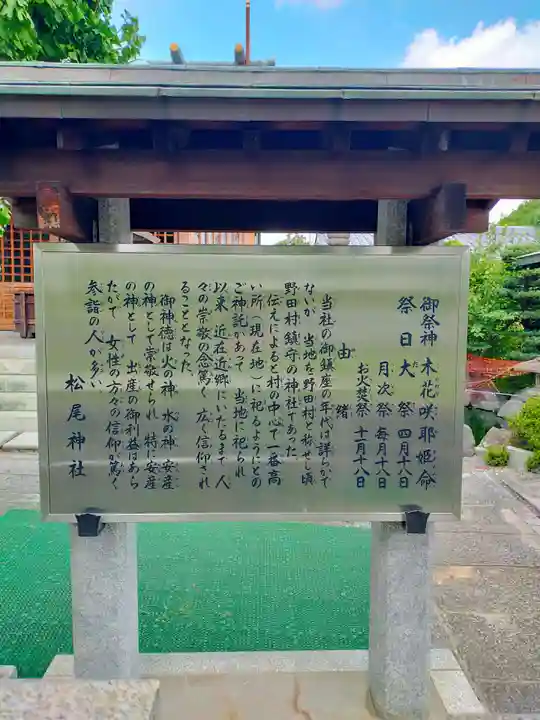 御祭神 木花咲耶姫命
祭日 大祭 四月十八日
月次祭 毎月十八日
お火焚祭 十一月十八日
由緒
当社の御鎮座の年代は詳らかで
ないが 当地を野田村と称せし頃
野田村鎮守の神社であった。
伝えによると村の中心で一番高
い所(現在地)に祀るようにとの
ご神託かあって 当地に祀られ
以来 近在近郷にいたるまで 人
々の崇敬の念篤く 広く信仰され
ることとなった。
御神徳は火の神 水の神 安産
の神として崇敬せられ 特に安産
の神として 出産の御利益はあら
たかで 女性の方々の信仰が篤く
参詣の人が多い
松尾神社